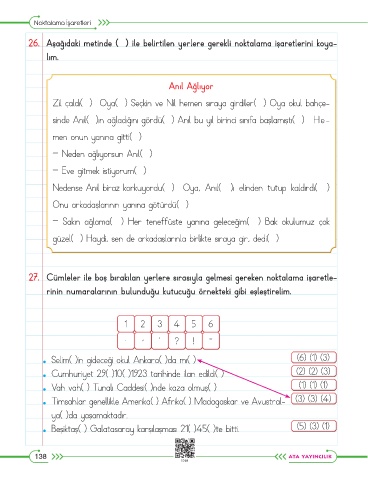 Noktalama İşaretleri
26. Aşağıdaki metinde ( ) ile belirtilen yerlere gerekli noktalama işaretlerini koya-
lım.
Anıl Ağlıyor
Zil çaldı( ) Oya( ) Seçkin ve Nil hemen sıraya girdiler( ) Oya okul bahçe-
sinde Anıl( )ın ağladığını gördü( ) Anıl bu yıl birinci sınıfa başlamıştı( ) He-
men onun yanına gitti( )
– Neden ağlıyorsun Anıl( )
– Eve gitmek istiyorum( )
Nedense Anıl biraz korkuyordu( ) Oya, Anıl( )ı elinden tutup kaldırdı( )
Onu arkadaşlarının yanına götürdü( )
– Sakın ağlama( ) Her teneffüste yanına geleceğim( ) Bak okulumuz çok
güzel( ) Haydi, sen de arkadaşlarınla birlikte sıraya gir, dedi( )
27. Cümleler ile boş bırakılan yerlere sırasıyla gelmesi gereken noktalama işaretle-
rinin numaralarının bulunduğu kutucuğu örnekteki gibi eşleştirelim.
1 2 3 4 5 6
? !
Selim( )in gideceği okul Ankara( )da mı( ) (6) (1) (3)
Cumhuriyet 29( )10( )1923 tarihinde ilan edildi( ) (2) (2) (3)
Vah vah( ) Tunalı Caddesi( )nde kaza olmuş( ) (1) (1) (1)
Timsahlar genellikle Amerika( ) Afrika( ) Madagaskar ve Avustral- (3) (3) (4)
ya( )da yaşamaktadır.
Beşiktaş( ) Galatasaray karşılaşması 21( )45( )te bitti. (5) (3) (1)
138
ATA YAYINCILIK